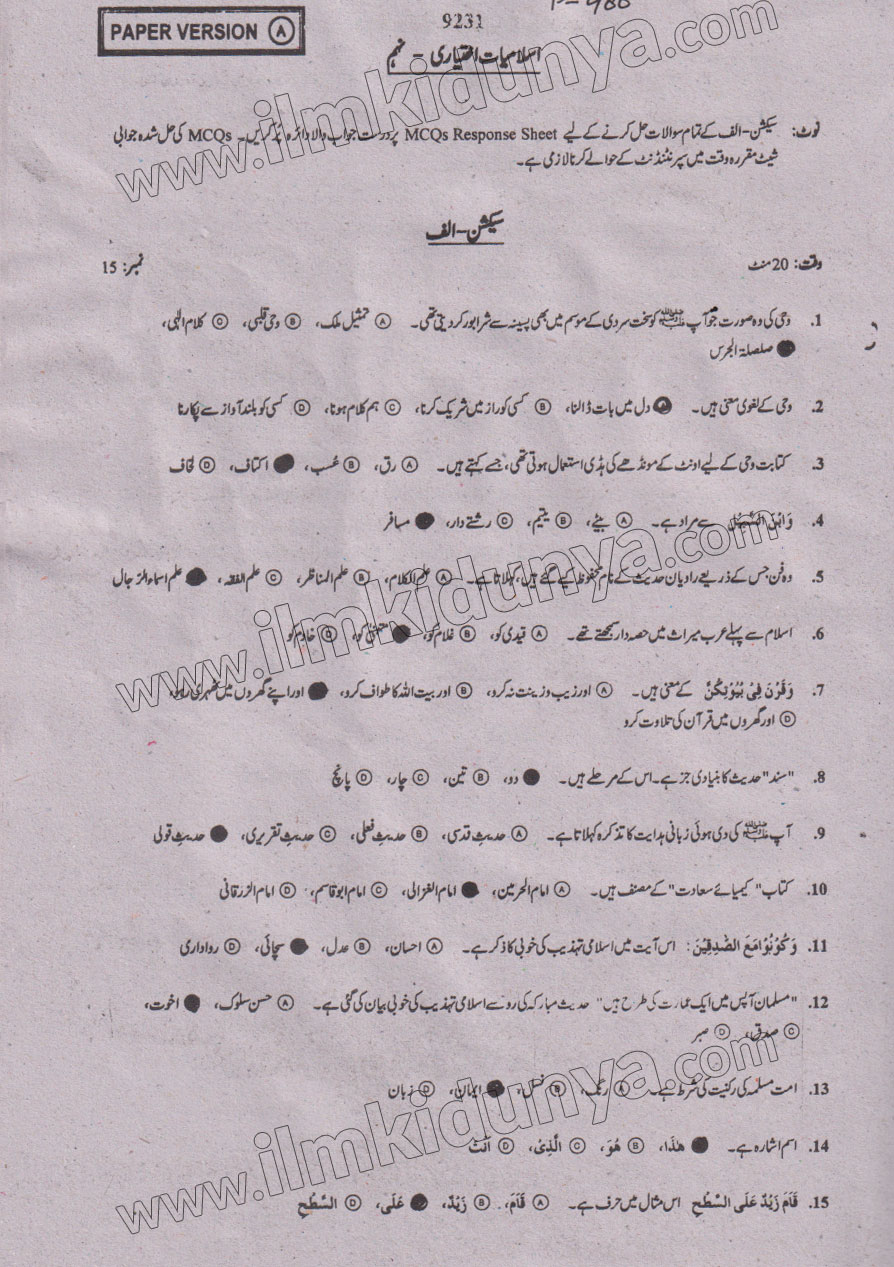 PAPER VERSION Ⓐ
9231
P-486
اسلامیات اختیاری - نہم
نوٹ: سیکشن-الف کے تمام سوالات حل کرنے کے لیے MCQs Response Sheet پر درست جواب والا دائرہ پُر کریں۔ MCQs کی حل شدہ جوابی
شیٹ مقررہ وقت میں سپرنٹنڈنٹ کے حوالے کرنا لازمی ہے۔
سیکشن-الف
وقت: 20 منٹ نمبر: 15
1. وحی کی وہ صورت جو آپ ﷺ کو سخت سردی کے موسم میں بھی پسینہ سے شرابور کر دیتی تھی۔ Ⓐ تمثیل ملک، Ⓑ وحی قلبی، Ⓒ کلام الٰہی،
● صلصلۃ الجرس
2. وحی کے لغوی معنی ہیں۔ ● دل میں بات ڈالنا، Ⓑ کسی کو راز میں شریک کرنا، Ⓒ ہم کلام ہونا، Ⓓ کسی کو بلند آواز سے پکارنا
3. کتابت وحی کے لیے اونٹ کے مونڈھے کی ہڈی استعمال ہوتی تھی، جسے کہتے ہیں۔ Ⓐ رق، Ⓑ عُسب، ● اکتاف، Ⓓ لخاف
4. وَابْنَ السَّبِيْلِ سے مراد ہے۔ Ⓐ بیٹے، Ⓑ یتیم، Ⓒ رشتے دار، ● مسافر
5. وہ فن جس کے ذریعے راویان حدیث کے نام محفوظ کیے گئے ہیں، کہلاتا ہے۔ Ⓐ علم الکلام، Ⓑ علم المناظر، Ⓒ علم الفقہ، ● علم اسماء الرّجال
6. اسلام سے پہلے عرب میراث میں حصہ دار سمجھتے تھے۔ Ⓐ قیدی کو، Ⓑ غلام کو، ● متبنّٰی کو، Ⓓ خادم کو
7. وَقَرْنَ فِىْ بُيُوْتِكُنَّ کے معنی ہیں۔ Ⓐ اور زیب و زینت نہ کرو، Ⓑ اور بیت اللہ کا طواف کرو، ● اور اپنے گھروں میں ٹھہری رہو،
Ⓓ اور گھروں میں قرآن کی تلاوت کرو
8. "سند" حدیث کا بنیادی جز ہے۔ اس کے مرحلے ہیں۔ ● دو، Ⓑ تین، Ⓒ چار، Ⓓ پانچ
9. آپ ﷺ کی دی ہوئی زبانی ہدایت کا تذکرہ کہلاتا ہے۔ Ⓐ حدیثِ قدسی، Ⓑ حدیثِ فعلی، Ⓒ حدیثِ تقریری، ● حدیثِ قولی
10. کتاب "کیمیائے سعادت" کے مصنف ہیں۔ Ⓐ امام الحرمین، ● امام الغزالی، Ⓒ امام ابو قاسم، Ⓓ امام الزرقانی
11. وَكُوْنُوْا مَعَ الصّٰدِقِيْنَ: اس آیت میں اسلامی تہذیب کی خوبی کا ذکر ہے۔ Ⓐ احسان، Ⓑ عدل، ● سچائی، Ⓓ رواداری
12. "مسلمان آپس میں ایک عمارت کی طرح ہیں" حدیث مبارکہ کی رو سے اسلامی تہذیب کی خوبی بیان کی گئی ہے۔ Ⓐ حسن سلوک، ● اخوت،
Ⓒ صدق، Ⓓ صبر
13. امت مسلمہ کی رکنیت کی شرط ہے۔ Ⓐ رنگ، Ⓑ نسل، ● ایمان، Ⓓ زبان
14. اسم اشارہ ہے۔ ● هٰذَا، Ⓑ هُوَ، Ⓒ الَّذِىْ، Ⓓ اَنْتَ
15. قَامَ زَيْدٌ عَلَى السَّطْحِ اس مثال میں حرف ہے۔ Ⓐ قَامَ، Ⓑ زَيْدٌ، ● عَلٰى، Ⓓ السَّطْحِ
www.ilmkidunya.com
www.ilmkidunya.com
www.ilmkidunya.com